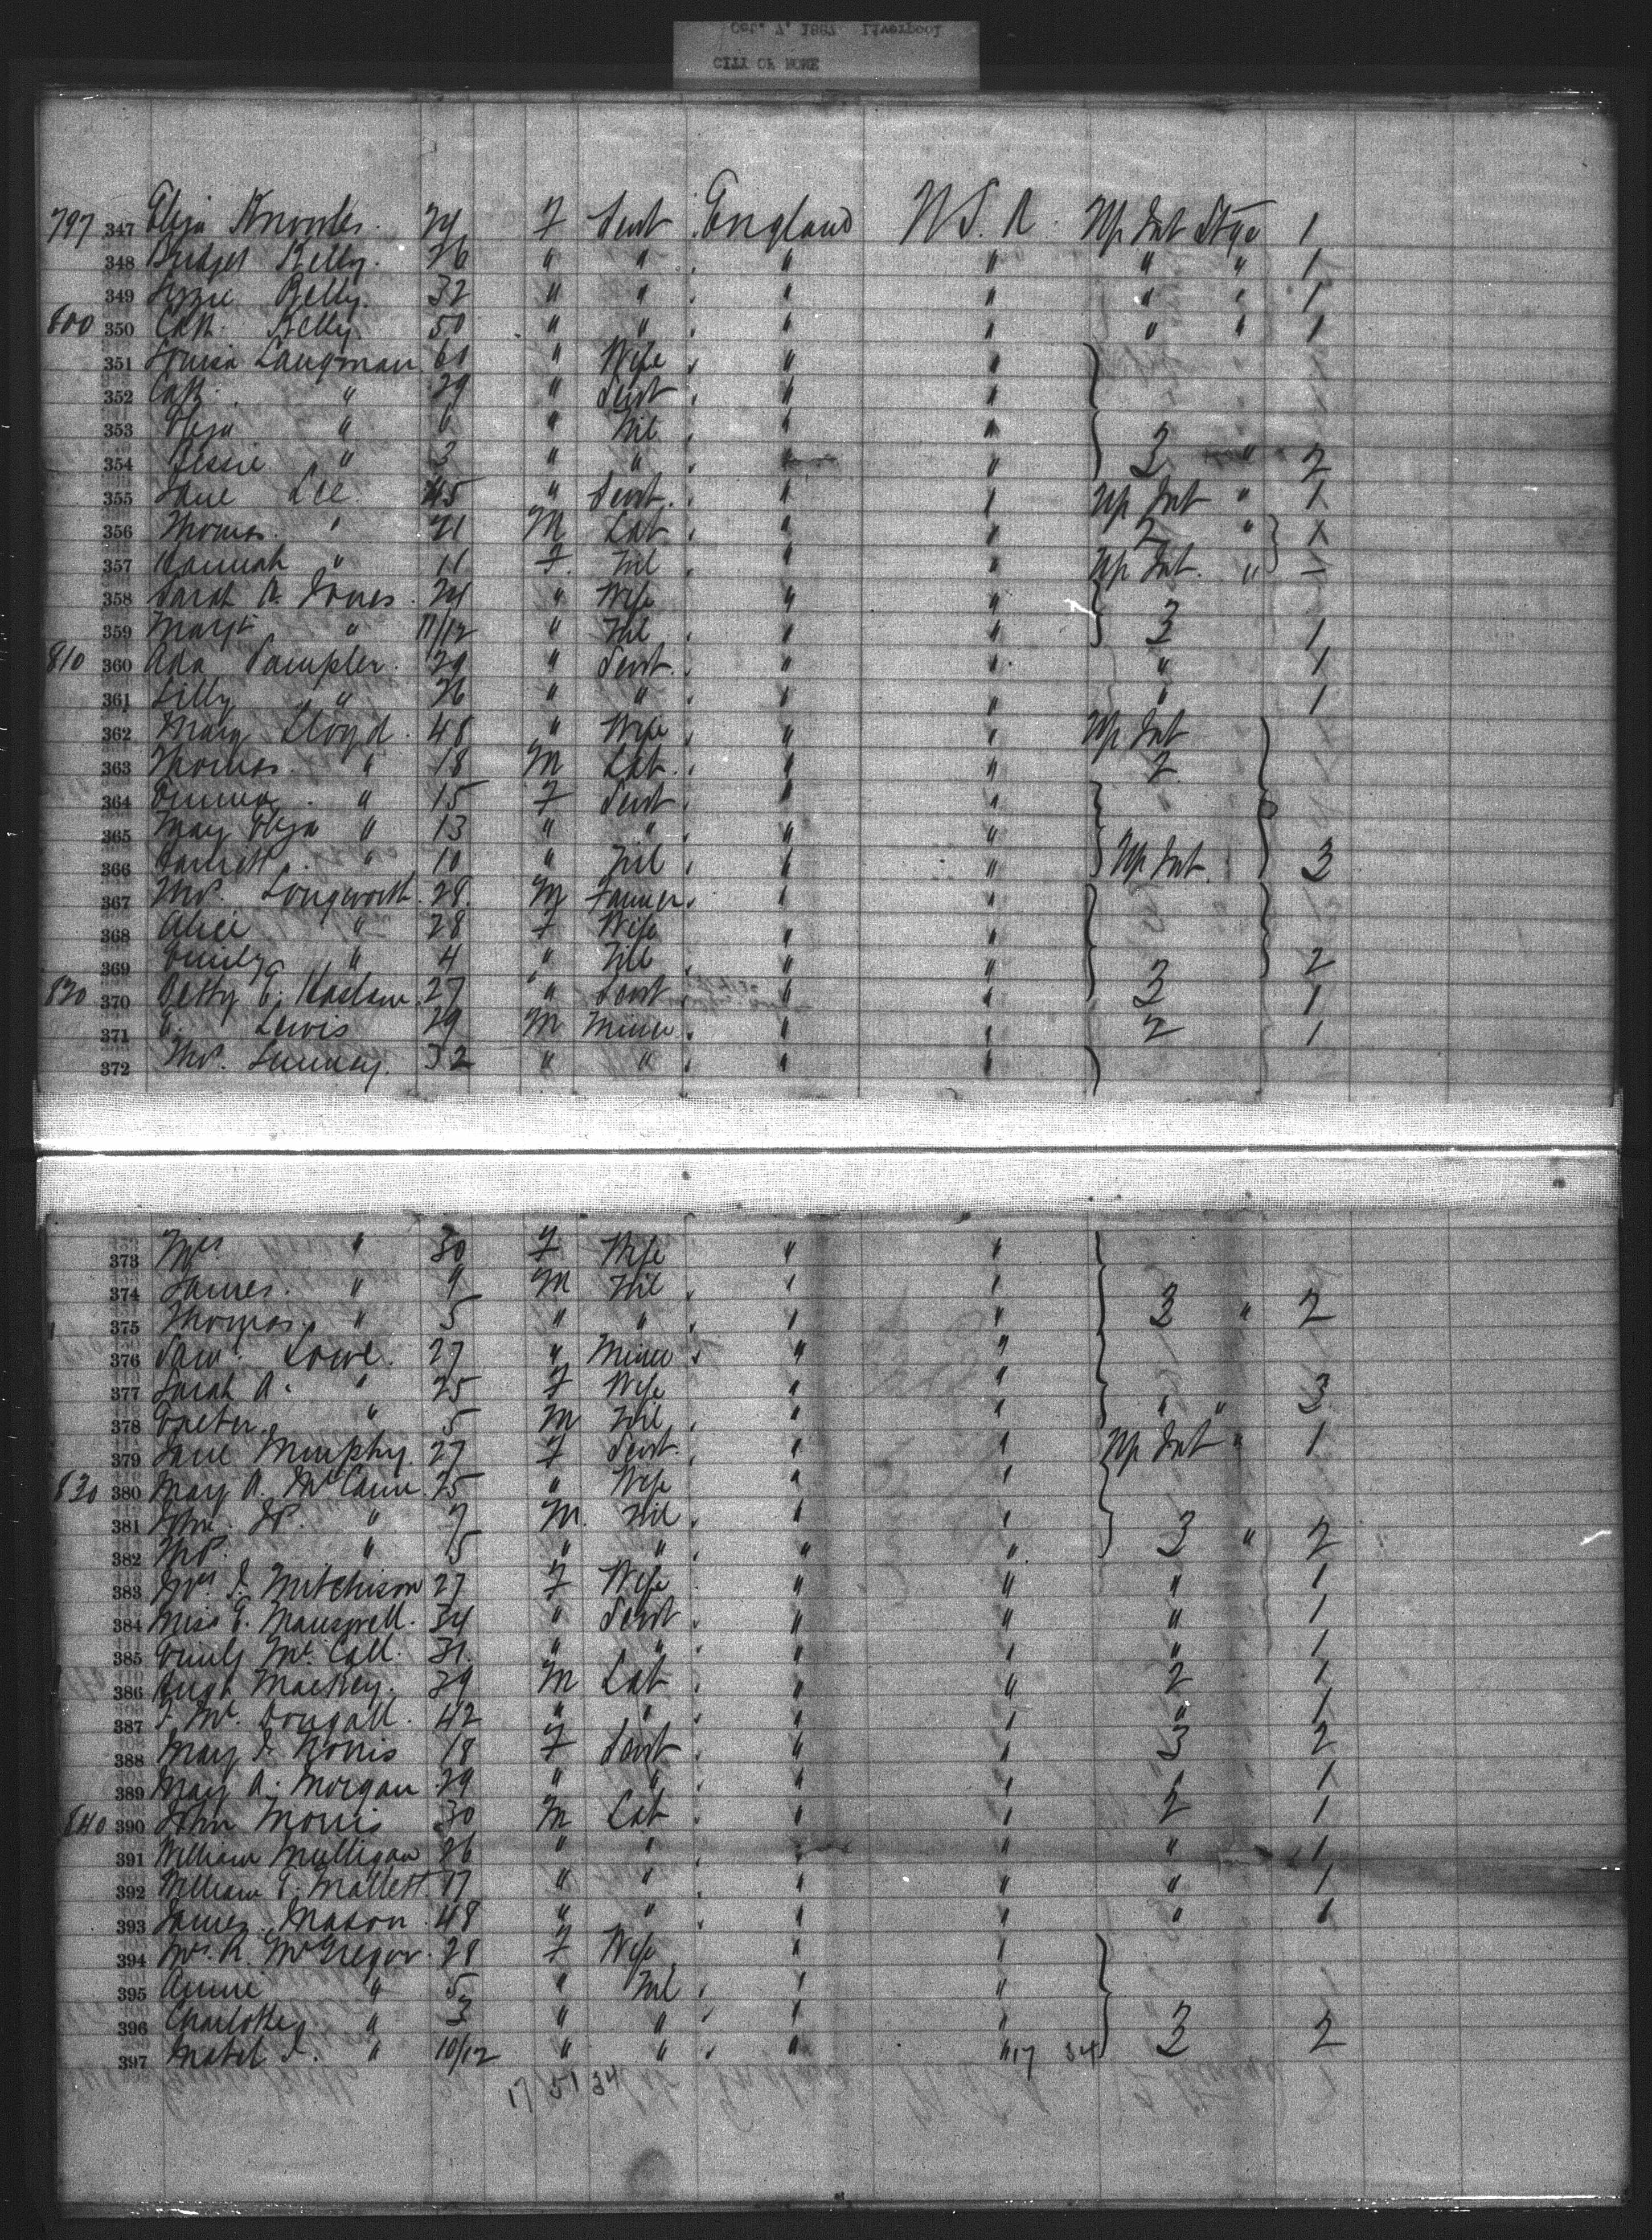 CITY OF ROME
Oct. 7, 1887 Liverpool
797 347 Eliza Knowles. 24 F Servt England U.S.A. Up Int Stge 1
348 Bridget Kelly. 26 " " " " " " 1
349 Lizzie Kelly. 32 " " " " " " 1
800 350 Cath. Kelly 50 " " " " " " 1
351 Louisa Langman 60 " Wife " "
352 Cath. " 29 " Servt " "
353 Eliza " 6 " Nil " "
354 Bessie " 3 " " " " 3 " 2
355 Jane Lee. 45 " Servt. " " Up Int " 1
356 Thomas. " 21 M Lab " " 2 " 1
357 Hannah " 11 F. Nil " " Up Int. "
358 Sarah A. Jones. 24 " Wife " "
359 Margt " 11/12 " Nil " " 3 1
810 360 Ada Sampler. 29 " Servt. " " " 1
361 Lilly " 26 " " " " " 1
362 Mary Lloyd. 48 " Wife " " Up Int
363 Thomas. " 18 M Lab. " " 2
364 Emma. " 15 F Servt " " "
365 Mary Eliza " 13 " " " "
366 " 10 " Nil " " Up Int. 3
367 Longworth. 28. M Farmer " "
368 Alice " 28 F Wife " "
369 Emily " 4 " Nil " " 2
820 370 Betty E. Haslam. 27 " Servt " " 3 1
371 Lewis 29 M Miner. " " 2 1
372 32 " " " "
373 Mrs " 30 F Wife " "
374 James. " 9 M Nil " "
375 Thomas. " 5 " " " " 3 " 2
376 Saml. Lowe. 27 " Miner " "
377 Sarah A. " 25 F Wife " " " " 3
378 " 5 M Nil " "
379 Jane Murphy. 27 F Servt. " " Up Int " 1
830 380 Mary A. McCann. 25 " Wife " "
381 John " 7 M. Nil " " 3 " 2
382 " 5 " " " "
383 Mrs J. Mitchison 27 F Wife " " " 1
384 Miss E. 34 " Servt " " " 1
385 Emily Mc. Call. 31. " " " " " 1
386 Hugh Mackey. 39 M Lab " " 2 1
387 J. Mc. Dougall. 42 " " " " " 1
388 Mary J. Norris 18 F Servt " " 3 2
389 Mary A. Morgan 29 " " " " " 1
840 390 John Morris 30 M Lab " " 2 1
391 William Mulligan 26 " " " " " 1
392 William T. Mallett. 17 " " " " " 1
393 James Mason. 48 " " " " " 1
394 Mrs. R. McGregor. 28 F Wife " "
395 Annie " 5 " Nil " "
396 Charlotte. " 3 " " " "
397 Mabel J. " 10/12 " " " " 17 34 3 2
17 51 34